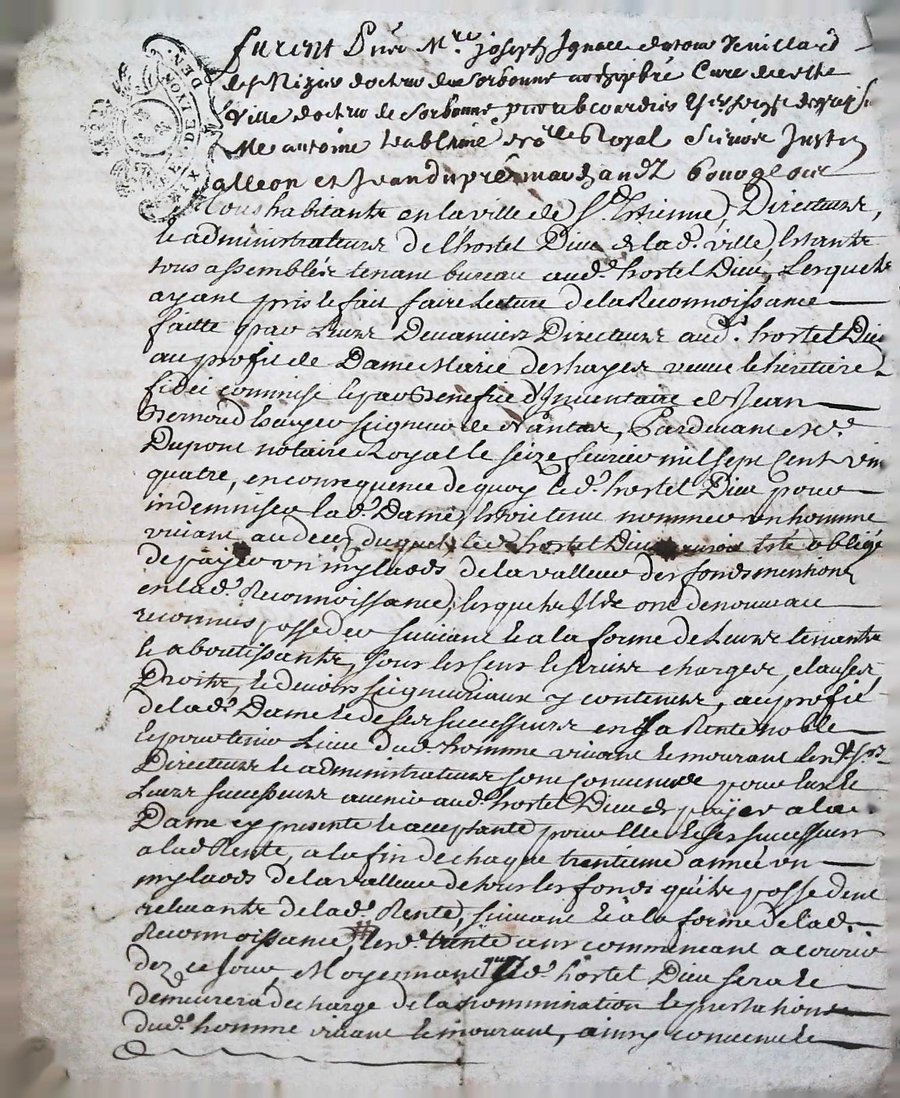 furent Mre joseph Ignace
docteur de Sorbonne Curé de
Ville docteur de Sorbonne,
Me antoine Royal Sieurs Just
alleon et Jean dupré marchandz Bourgeois
Tous habitants en la ville de St. Estienne, Directeurs,
et administrateurs de l'hostel Dieu de lad. ville, Estants
tous assemblés tenant bureau aud. hostel Dieu, Lesquels
ayant pris et fait faire Lecture de la Reconnoissance
faitte par Leurs Devanciers Directeurs aud. hostel Dieu
au profit de Dame Marie deshayes veuve et heritiere
fidei commise et par Benefice d'Inventaire de Jean
seigneur de Nantas, Pardevant Me
Dupont notaire Royal le seize feurier mil sept Cent vin
quatre, en consequence de quoy led. hostel Dieu pour
indemniser lad. Dame, Estoit tenu nommer un homme
vivant au deces duquel led. hostel Dieu auroit Esté obligé
de payer un my laods de la valleur des fonds mentionés
en lad. Reconnoissance, lesquels Ils ont de nouveau
reconnus posseder suivant et a la forme de Leurs tenants
et aboutissants, sous les Cens et servis charges, clauses
Droits, et devoirs seigneuriaux y contenus, au profit
de lad. Dame et de ses successeurs en sa Rente noble
et pour tenir Lieu dud. homme vivant et mourant lesd. Srs
Directeurs et administrateurs sont convenus pour Eux et
Leurs successeurs a venir aud. hostel Dieu de payer a lad.
Dame cy presente et acceptante pour Elle et ses successeurs
a lad. Rente, a la fin de chaque trentieme année un
my laods de la valleur de tous les fonds qu'ils possedent
relevants de lad. Rente, suivant et à la forme de lad.
Reconnoissance, lesd. trente ans commencant a courir
dez ce jour, Moyennant quoy led. hostel Dieu sera et
demeurera decharge de la nommination et prestations
dud. homme vivant et mourant, ainsy convenu et